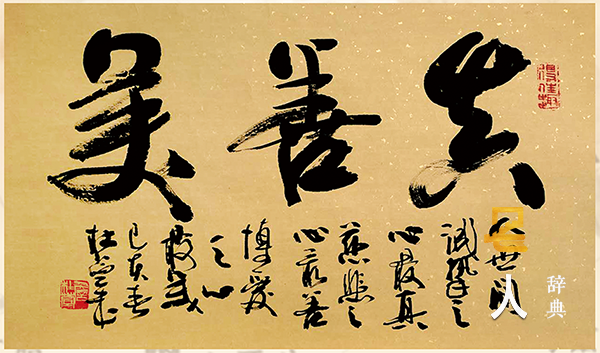 真善美
人世间
诚挚之
心最真
慈悲之
心最善
博爱
之心
最美
己亥春
得佳趣
人
辞典